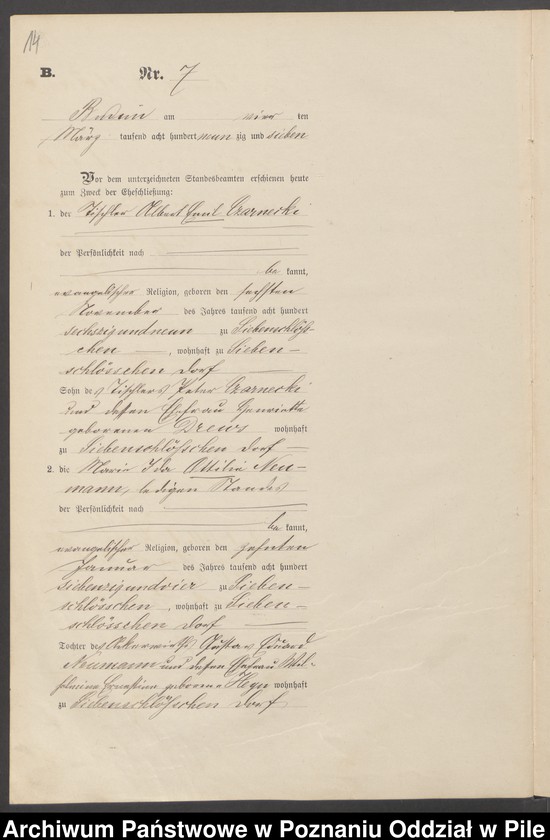 14
B. Nr. 7
Budsin am vier ten
März tausend acht hundert neun zig und sieben
Vor dem unterzeichneten Standesbeamten erschienen heute
zum Zweck der Eheschließung:
1. der Tischler Albert Emil Czarnecki
der Persönlichkeit nach
be kannt,
evangelischer Religion, geboren den sechsten
November des Jahres tausend acht hundert
sechszigundneun zu Siebenschlöß-
chen, wohnhaft zu Sieben-
schlösschen Dorf
Sohn des Tischlers Peter Czarnecki
und dessen Ehefrau Henriette
geborenen Drews wohnhaft
zu Siebenschlößchen Dorf
2. die Marie Ida Ottilie Neu-
mann, ledigen Standes
der Persönlichkeit nach
be kannt,
evangelischer Religion, geboren den zehnten
Januar des Jahres tausend acht hundert
siebenzigundvier zu Sieben-
schlösschen, wohnhaft zu Sieben-
schlösschen Dorf
Tochter des Ackerwirths Gustav Eduard
Neumann und dessen Ehefrau Wil-
helmine Ernestine geborene wohnhaft
zu Siebenschlößchen Dorf
Archiwum Państwowe w Poznaniu Oddział w Pile